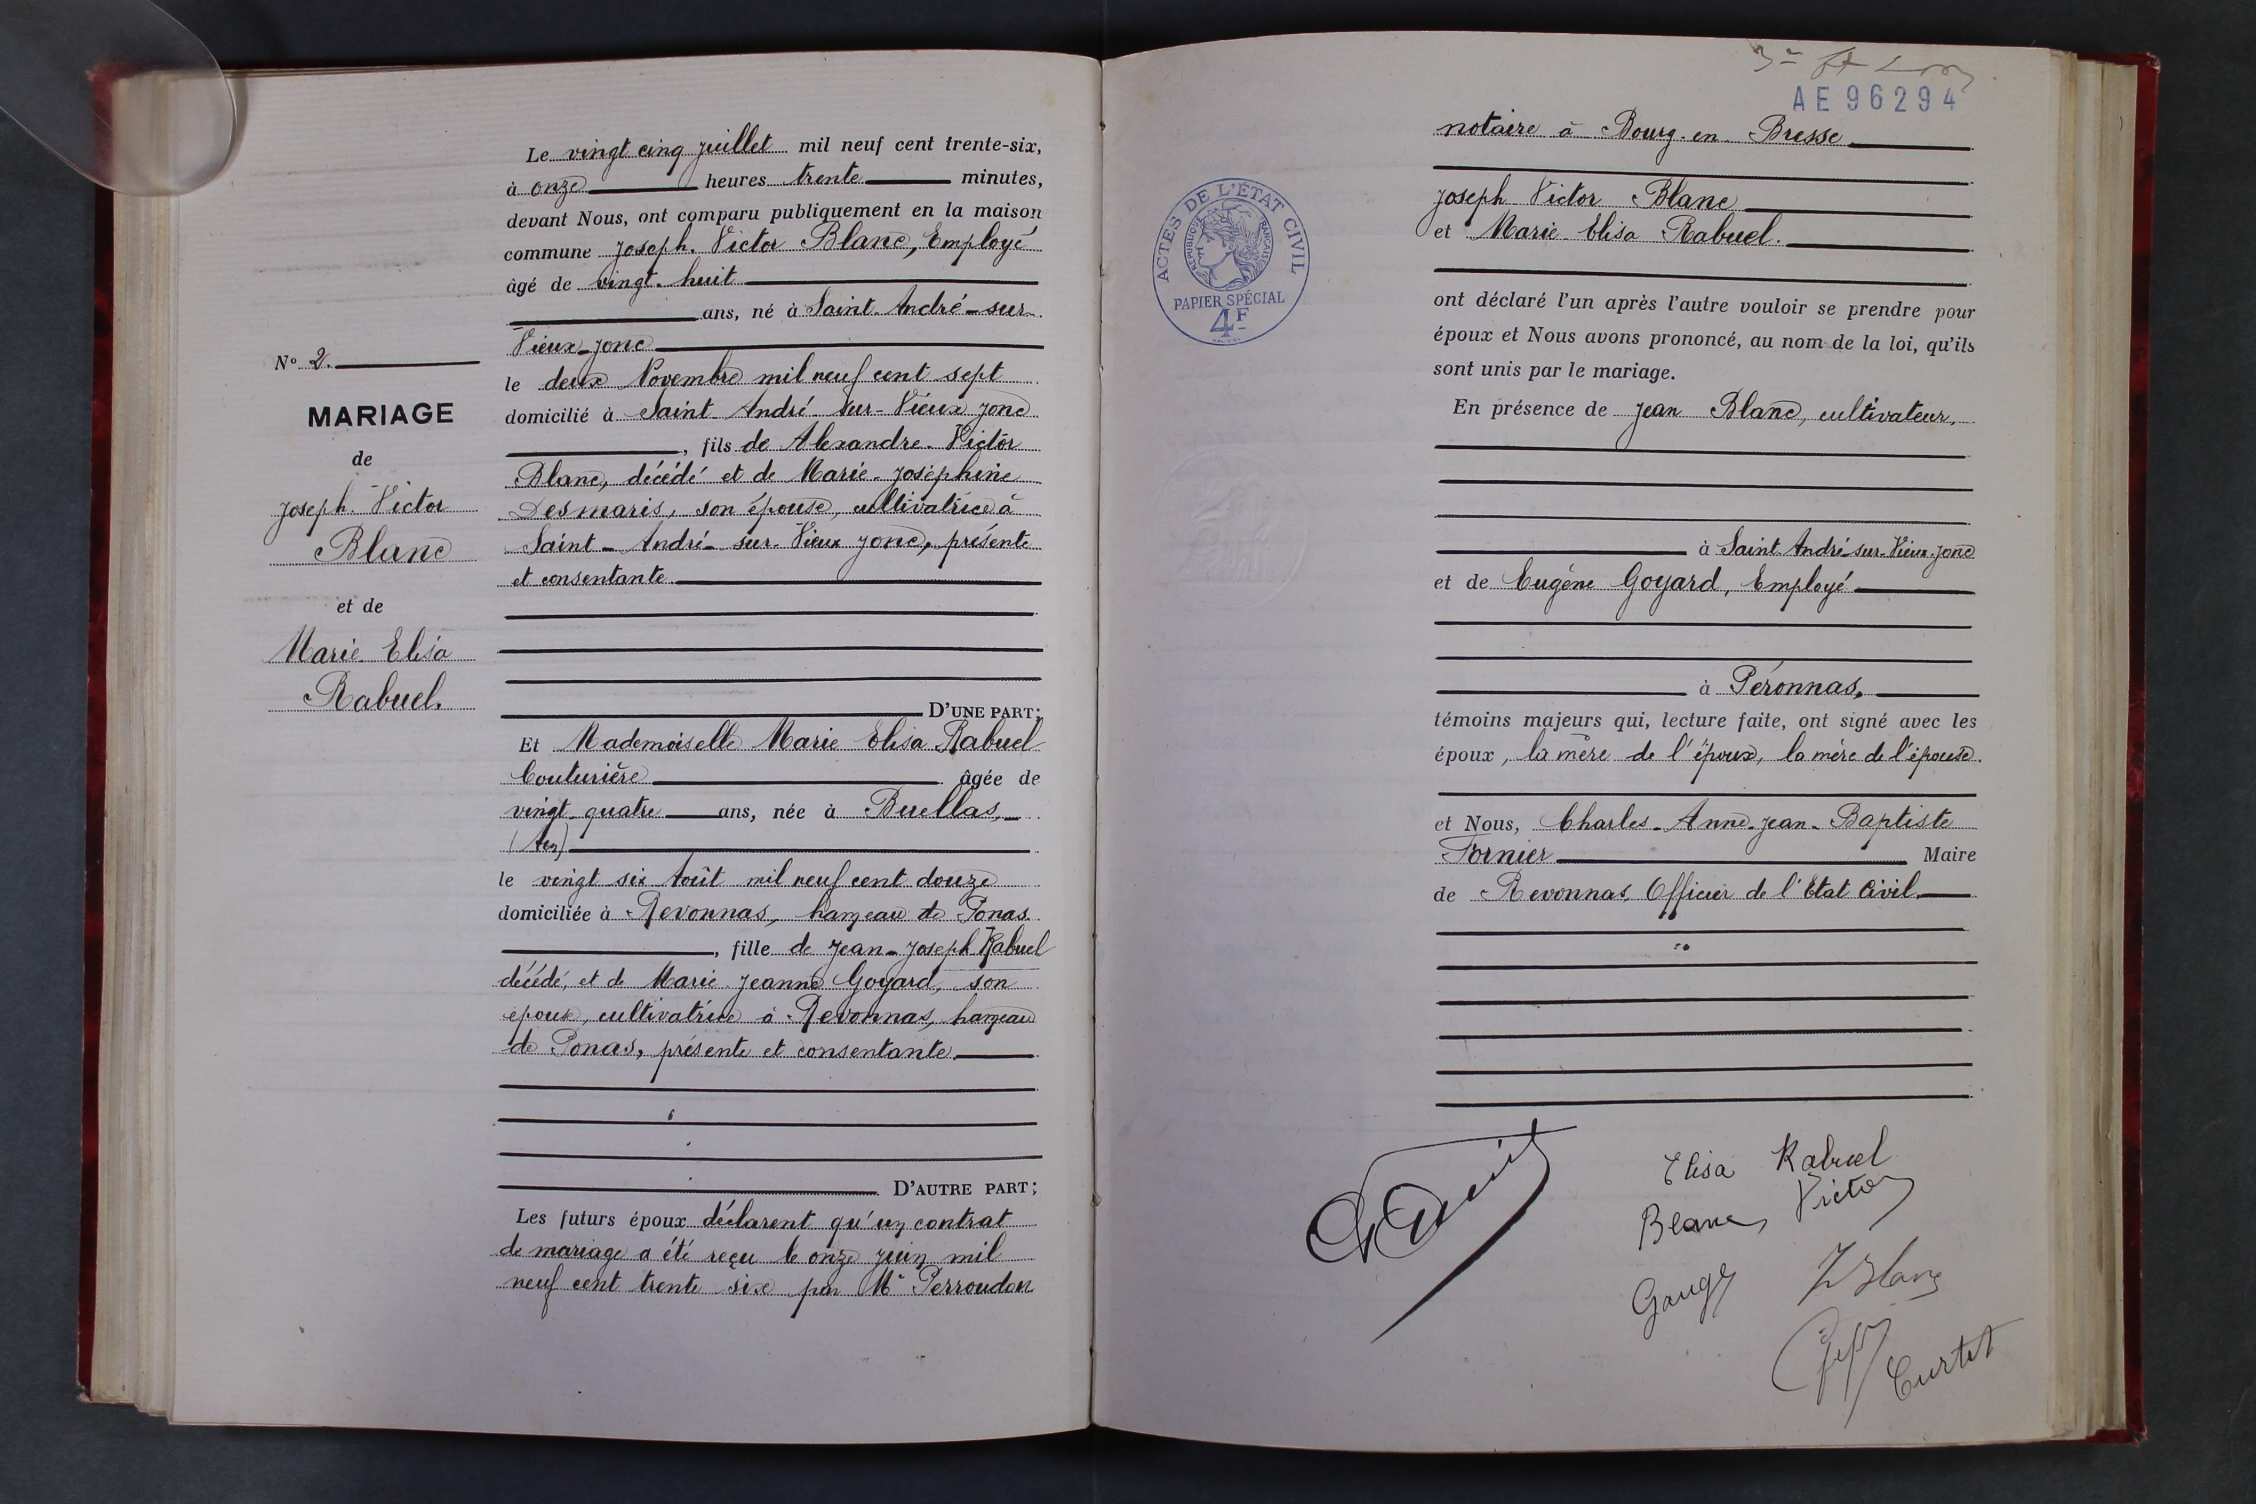 Le vingt cinq juillet mil neuf cent trente-six,
à onze heures trente minutes,
devant Nous, ont comparu publiquement en la maison
commune Joseph-Victor Blanc, Employé
âgé de vingt-huit
ans, né à Saint-André-sur-
Vieux-Jonc
le deux Novembre mil neuf cent sept
domicilié à Saint-André-sur-Vieux Jonc
, fils de Alexandre-Victor
Blanc, décédé et de Marie-Joséphine
Desmaris, son épouse, cultivatrice à
Saint-André-sur-Vieux Jonc, présente
et consentante.
D'UNE PART;
Et Mademoiselle Marie Elisa Rabuel
Couturière âgée de
vingt-quatre ans, née à Buellas,
(Ain)
le vingt six Août mil neuf cent douze
domiciliée à Revonnas, hameau de Ponas.
, fille de Jean-Joseph Rabuel
décédé, et de Marie-Jeanne Goyard, son
épouse, cultivatrice à Revonnas, hameau
de Ponas, présente et consentante.
D'AUTRE PART;
Les futurs époux déclarent qu'un contrat
de mariage a été reçu le onze juin mil
neuf cent trente six par Me Perroudon
No 2.
MARIAGE
de
Joseph-Victor
Blanc
et de
Marie Elisa
Rabuel.
AE96294
notaire à Bourg-en-Bresse
Joseph Victor Blanc
et Marie-Elisa Rabuel.
ont déclaré l'un après l'autre vouloir se prendre pour
époux et Nous avons prononcé, au nom de la loi, qu'ils
sont unis par le mariage.
En présence de Jean Blanc, cultivateur,
à Saint André-sur-Vieux-Jonc
et de Eugène Goyard, Employé
à Péronnas,
témoins majeurs qui, lecture faite, ont signé avec les
époux, la mère de l'époux, la mère de l'épouse.
et Nous, Charles-Anne-Jean-Baptiste
Fornier Maire
de Revonnas, Officier de l'Etat Civil
ACTES DE L'ÉTAT CIVIL
RÉPUBLIQUE FRANÇAISE
PAPIER SPÉCIAL
4F
Elisa Rabuel
Blanc Victor
Curtet